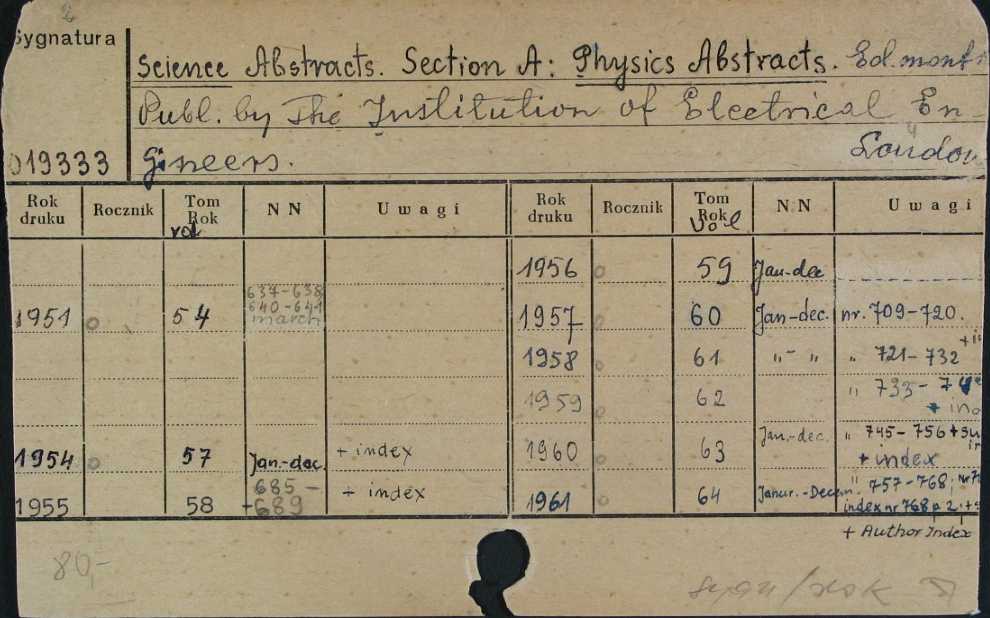 2
Sygnatura
Science Abstracts. Section A: Physics Abstracts. Ed. month
Publ. by The Institution of Electrical En-
gineers. London
019333
Rok druku Rocznik Tom Rok vol NN Uwagi Rok druku Rocznik Tom Rok Vol NN Uwagi
1956 0 59 Jan-dec
1951 0 54 637-638 640-641 march 1957 0 60 Jan-dec. nr. 709-720.
1958 0 61 „-„ „ 721-732
1959 0 62 „ 733-
1954 0 57 Jan.-dec. + index 1960 0 63 Jan.-dec. „ 745-756 + index
1955 58 685- +689 + index 1961 0 64 Janur.-Decem. „ 757-768,
index nr 768 p 2,
+ Author Index
80,-